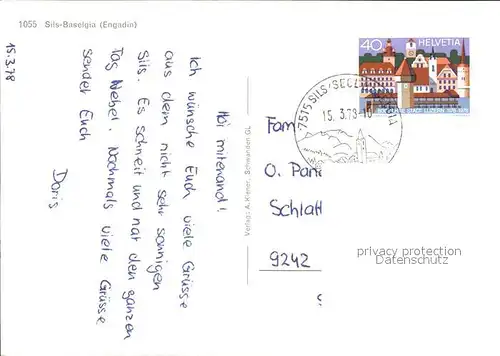 1055 Sils-Baselgia (Engadin)
15.3.78
Hoi mitenand!
Ich wünsche Euch viele Grüsse
aus dem nicht sehr sonnigen
Sils. Es schneit und hat den ganzen
Tag Nebel. Nochmals viele Grüsse
sendet Euch
Doris
Verlag: A. Kiener, Schwanden GL
40 HELVETIA
7515 SILS
15.3.78
Fam
O.
Schlatt
9242
privacy protection
Datenschutz